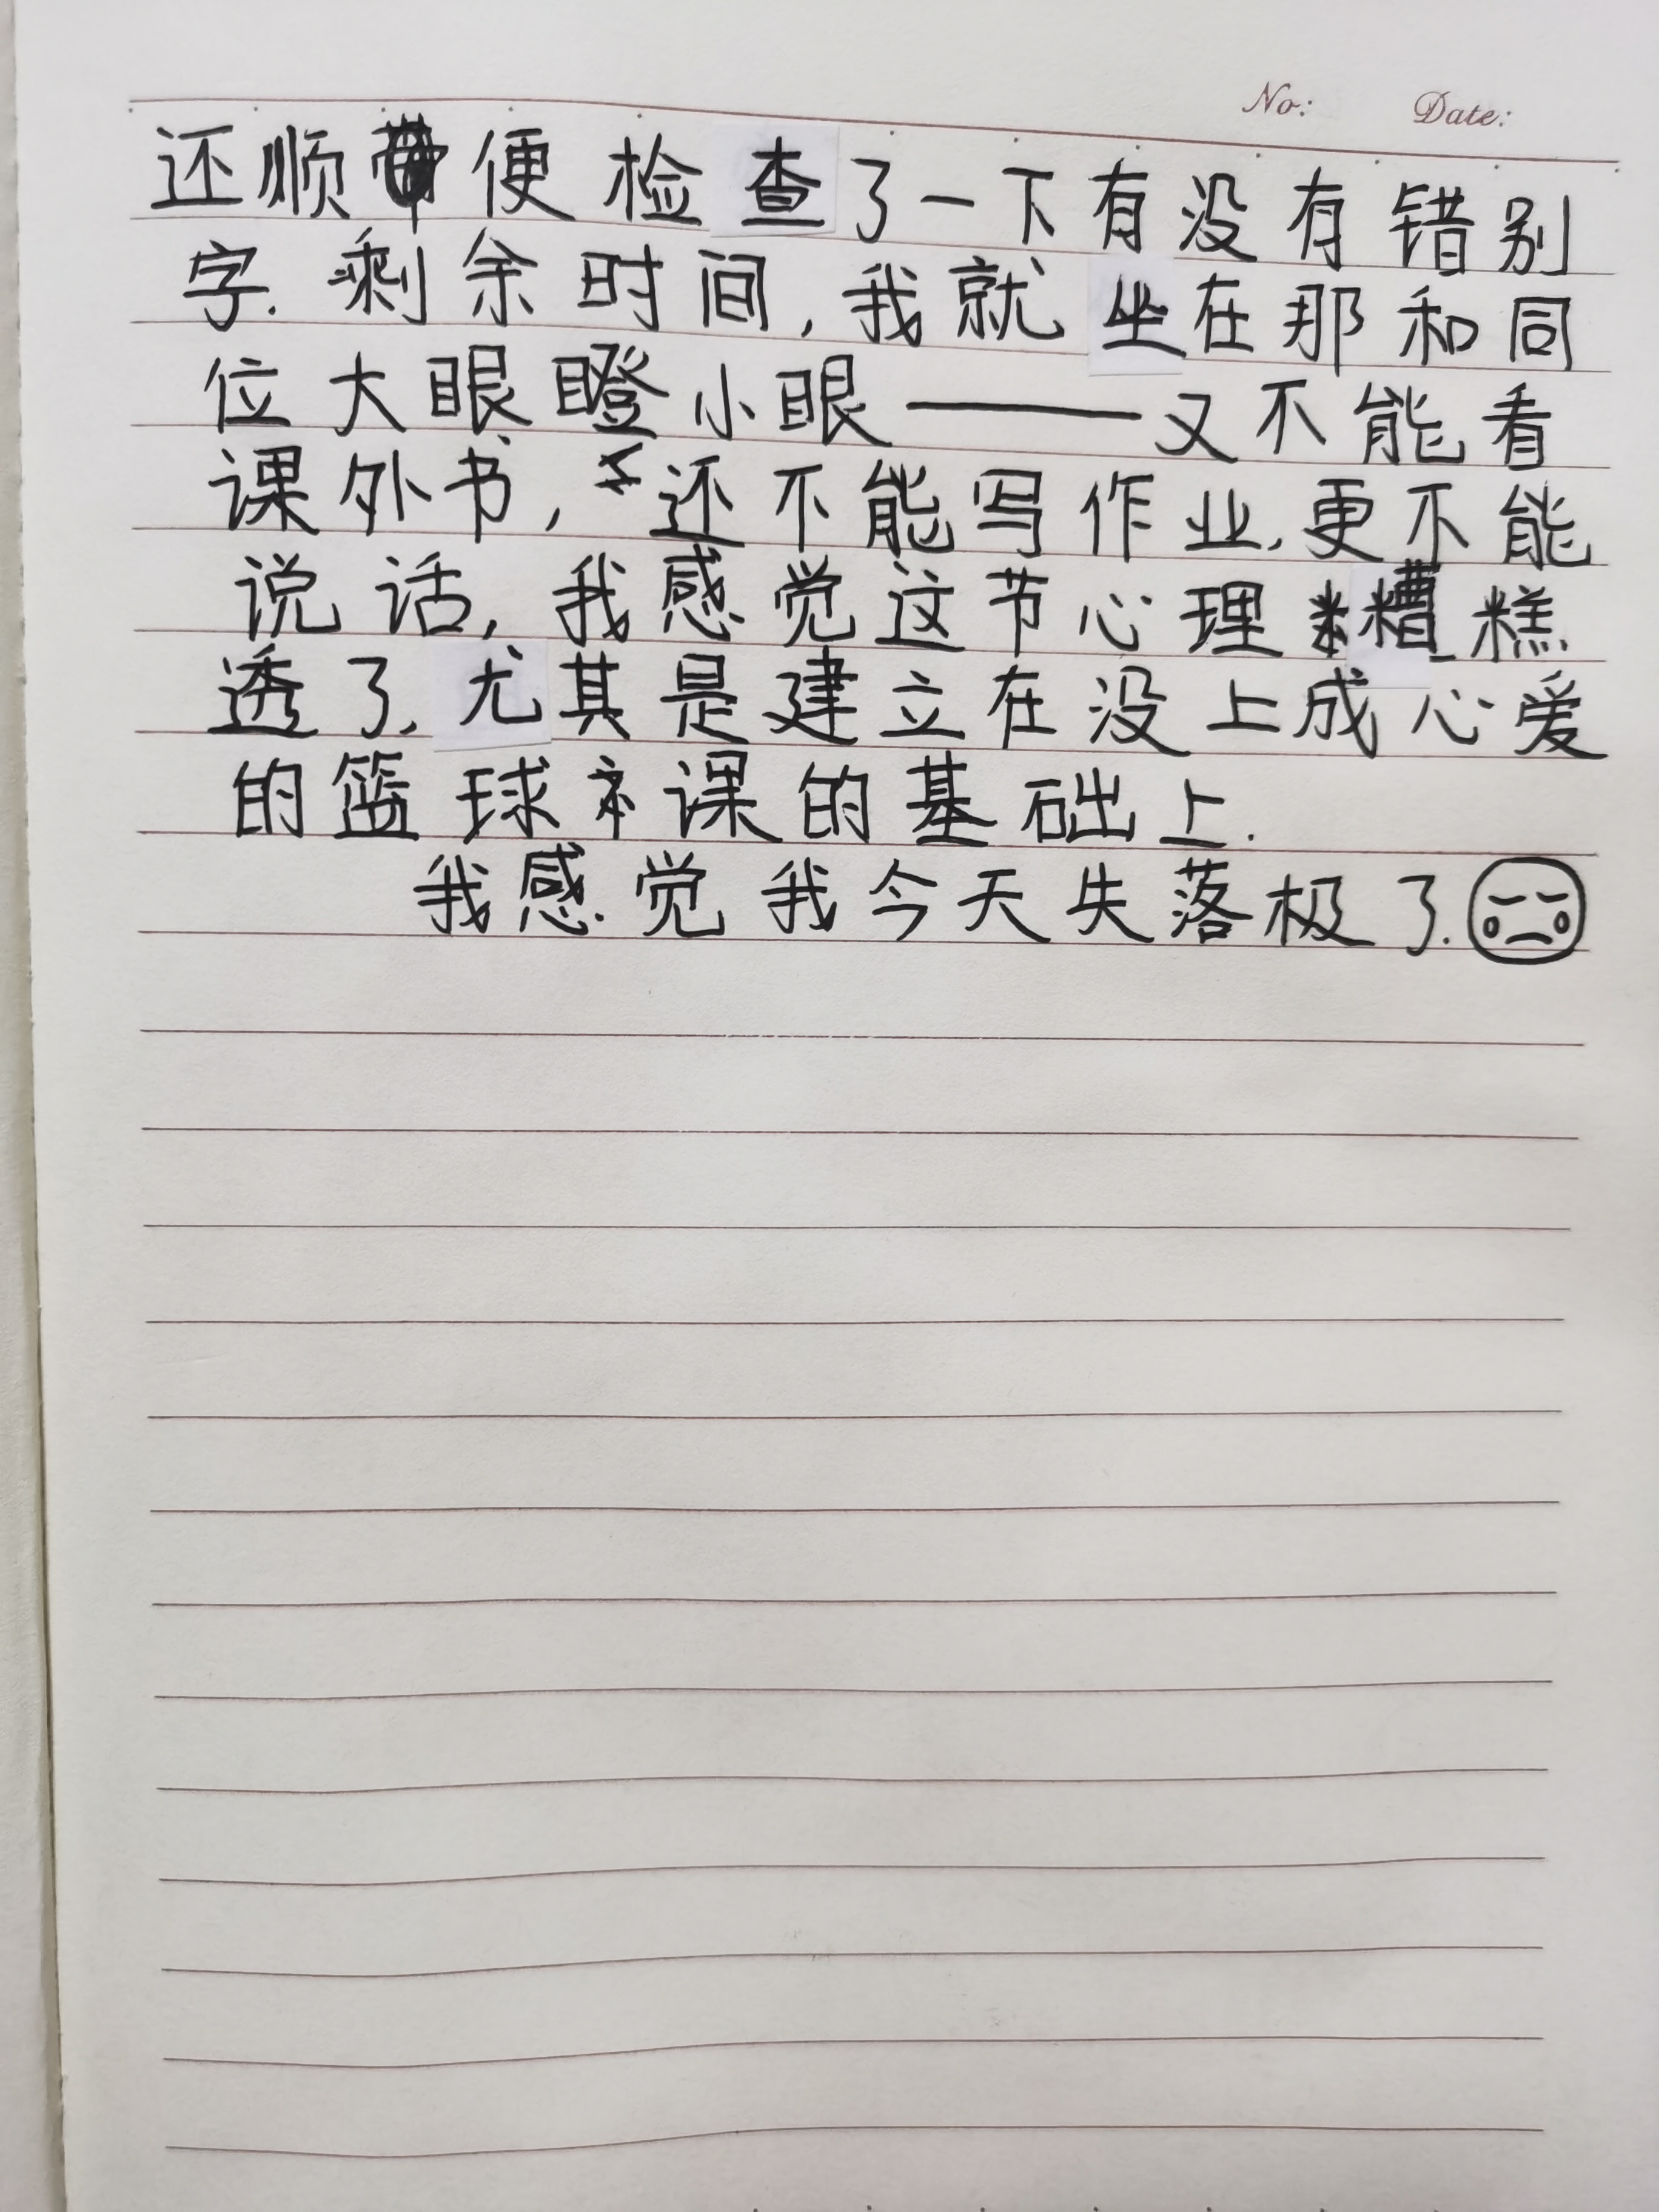 No: Date:
还顺便检查了一下有没有错别
字.剩余时间,我就坐在那和同
位大眼瞪小眼——又不能看
课外书,还不能写作业,更不能
说话,我感觉这节心理糟糕
透了.尤其是建立在没上成心爱
的篮球课的基础上.
我感觉我今天失落极了.